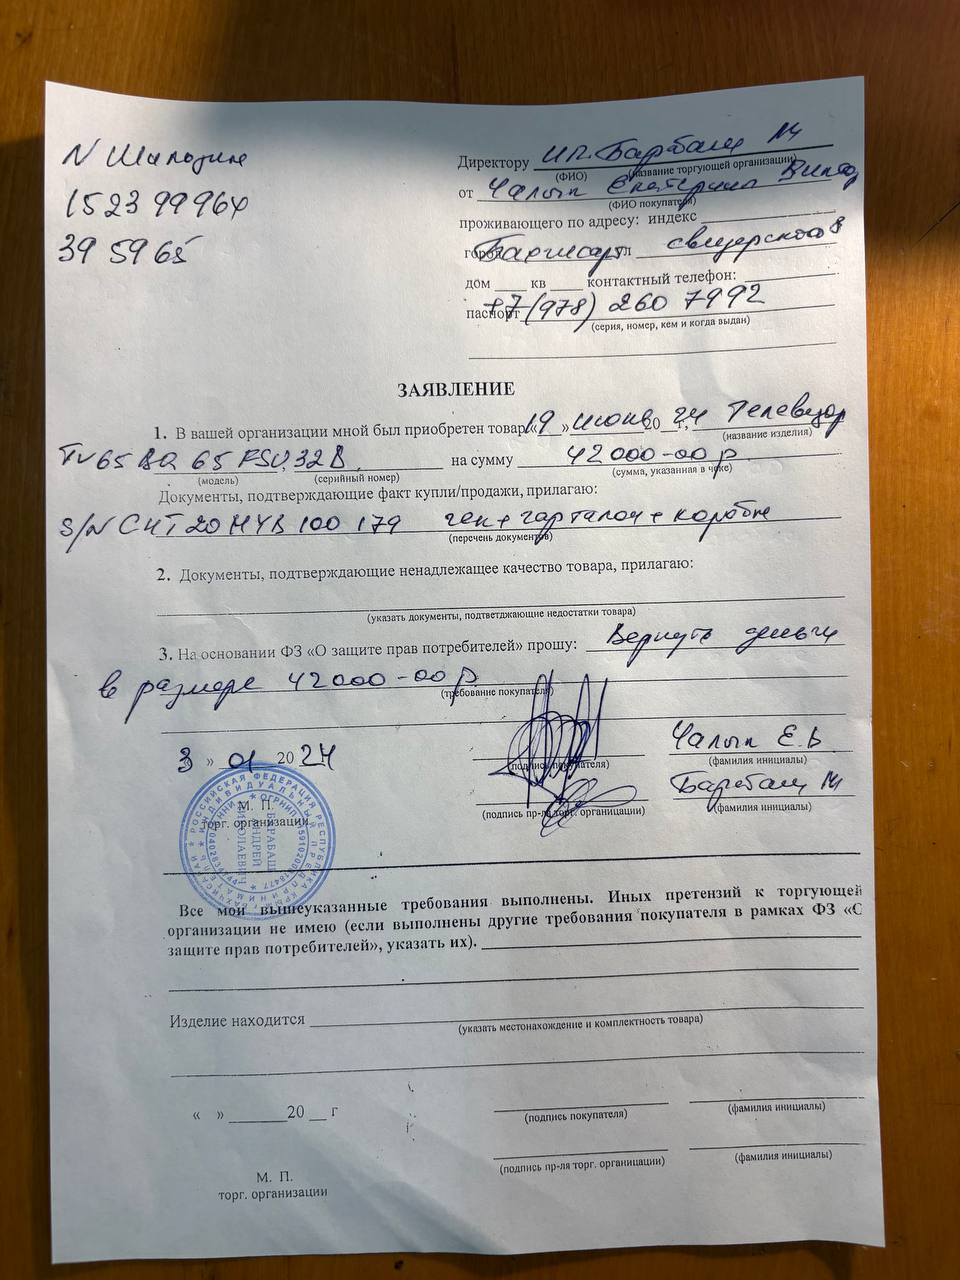 N Шапозин
1523 99964
39 5965
Директору И.П. Барбаш
(ФИО) (название торгующей организации)
от Чалык Екатерина
(ФИО покупателя)
проживающего по адресу: индекс
город ул
дом ___ кв ___ контактный телефон:
паспорт +7(978) 260 7992
(серия, номер, кем и когда выдан)
ЗАЯВЛЕНИЕ
1. В вашей организации мной был приобретен товар «19» 20 24 г, Телевизор
(название изделия)
TV 65 BQ 65 FSU32B на сумму 42000-00 р
(модель) (серийный номер) (сумма, указанная в чеке)
Документы, подтверждающие факт купли/продажи, прилагаю:
S/N 100 179 чек + + коробке
(перечень документов)
2. Документы, подтверждающие ненадлежащее качество товара, прилагаю:
(указать документы, подтветджающие недостатки товара)
3. На основании ФЗ «О защите прав потребителей» прошу: Вернуть деньги
в размере 42000-00 р
(требование покупателя)
3 » 01 20 24 Чалык Е.В
(подпись покупателя) (фамилия инициалы)
М. П. Барбаш
торг. организации (подпись пр-ля торг. органицации) (фамилия инициалы)
РОССИЙСКАЯ ФЕДЕРАЦИЯ РЕСПУБЛИКА КРЫМ
ИНДИВИДУАЛЬНЫЙ ПРЕДПРИНИМАТЕЛЬ
БАРАБАШ
АНДРЕЙ
НИКОЛАЕВИЧ
Все мои вышеуказанные требования выполнены. Иных претензий к торгующей
организации не имею (если выполнены другие требования покупателя в рамках ФЗ «О
защите прав потребителей», указать их).
Изделие находится
(указать местонахождение и комплектность товара)
« » 20 г
(подпись покупателя) (фамилия инициалы)
(подпись пр-ля торг. органицации) (фамилия инициалы)
М. П.
торг. организации